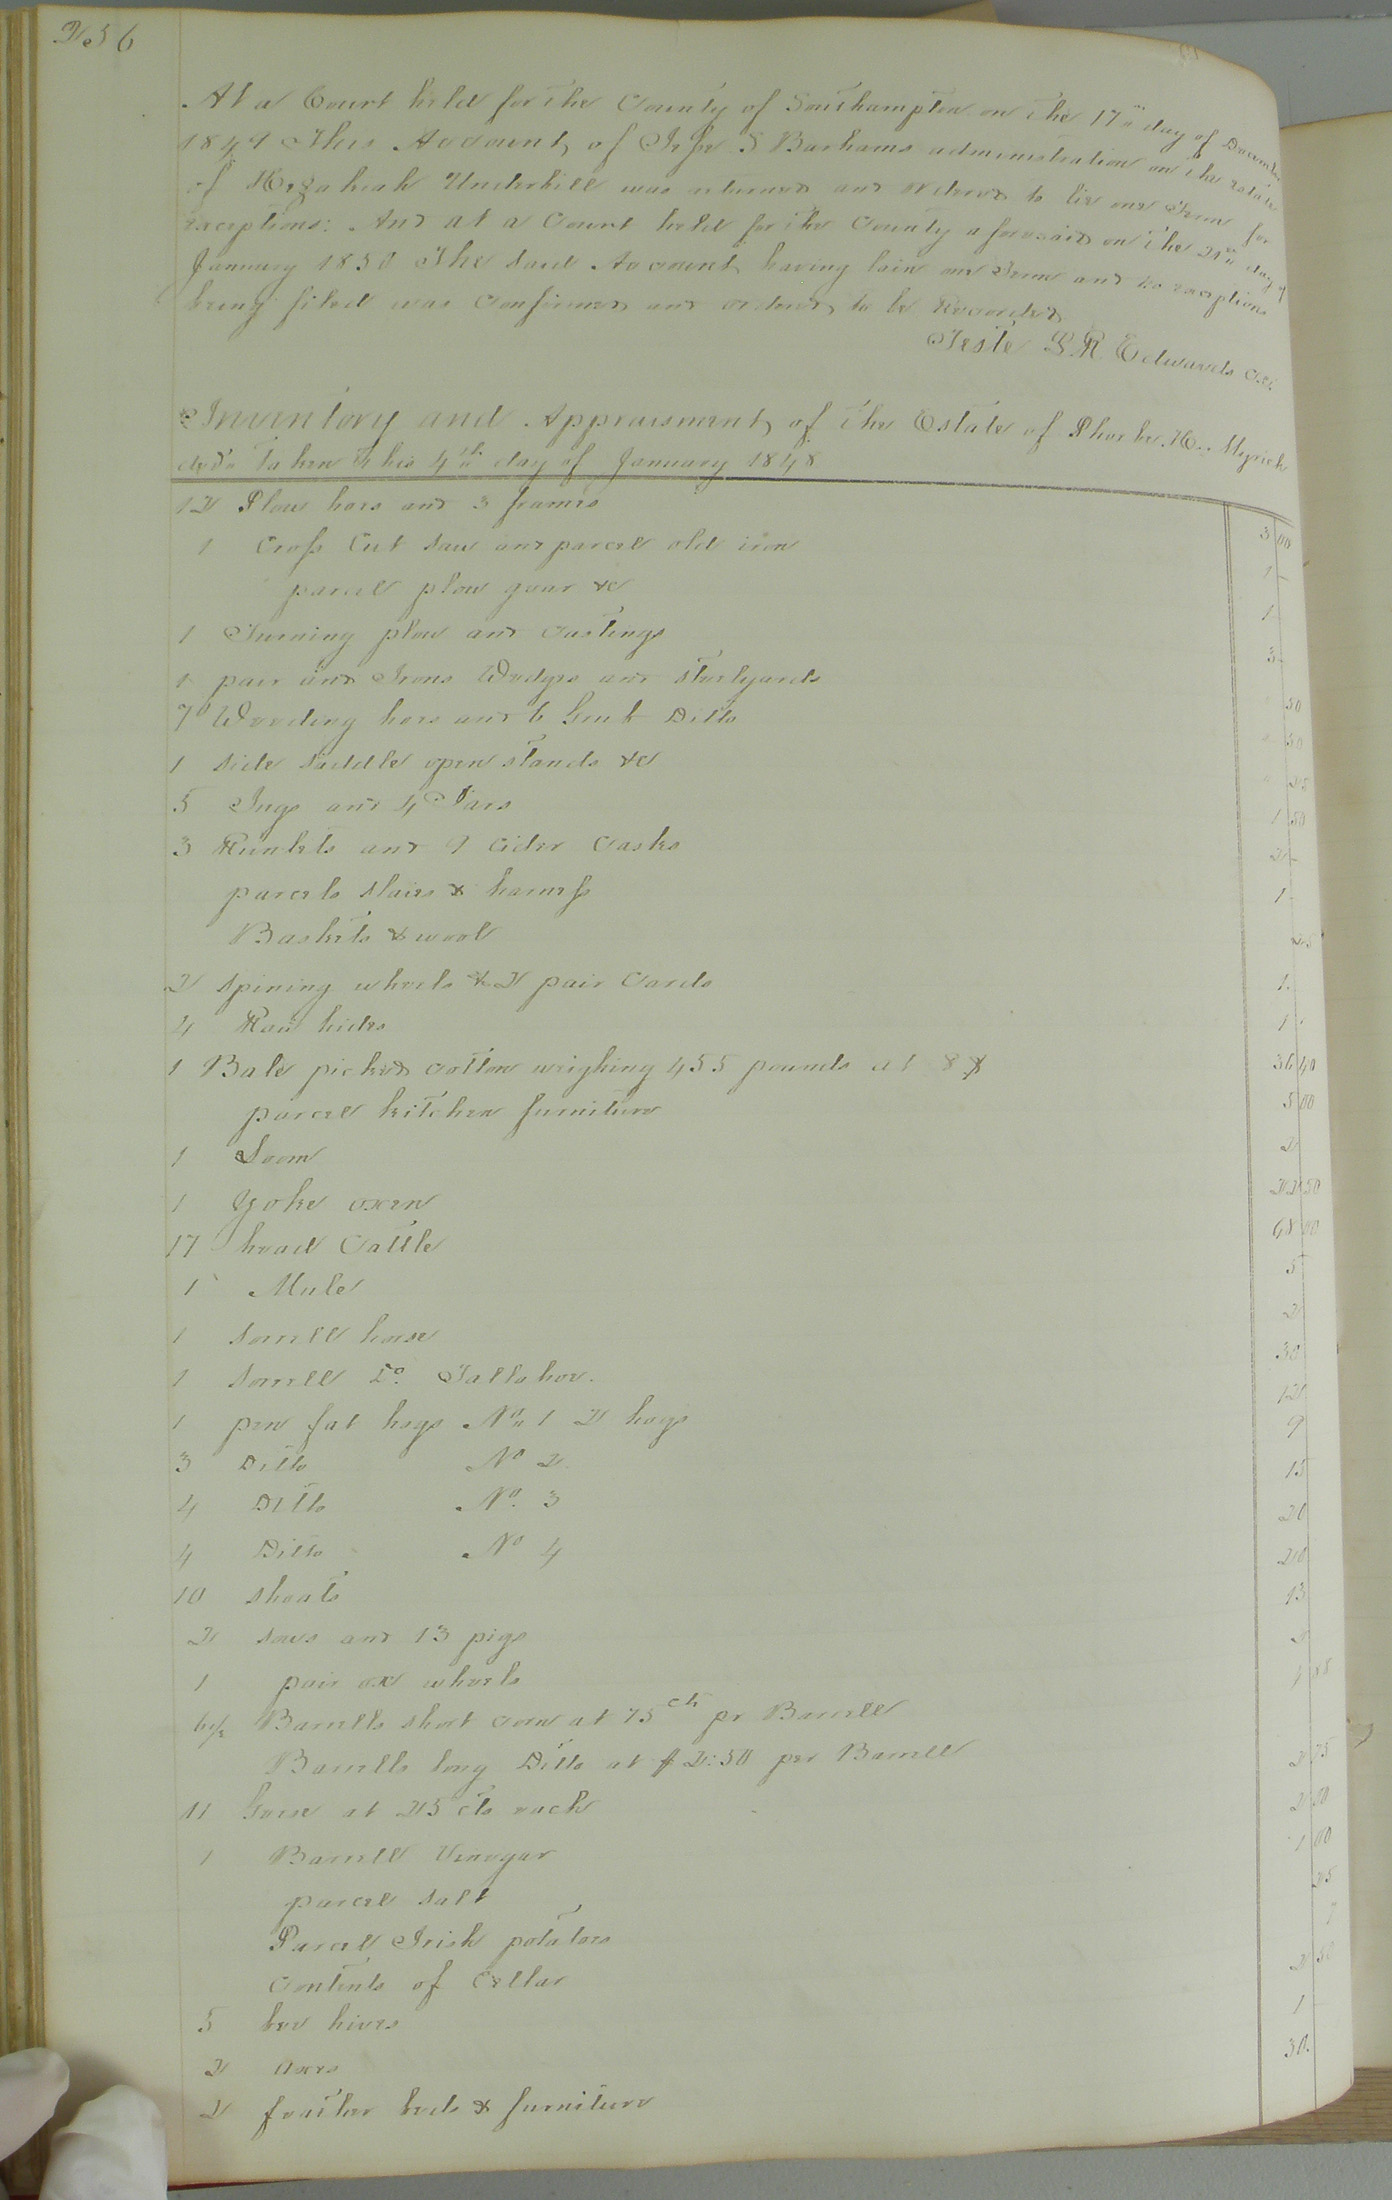 256
At a Court held for the County of Southampton on the 17th day of December
1849 This Account of Jesse S Barhams administration on the estate
of Hezakiah Underhill was returned and ordered to lie one Term for
exceptions: And at a Court held for the County aforesaid on the 21st day of
January 1850 The said Account having lain one Term and no exceptions
being filed was Confirmed and ordered to be Recorded
Teste L R Edwards CSC.
Inventory and Appraisment of the Estate of Phoebe H. Myrick
decd. Taken this 4th day of January 1848
12 Plow hoes and 3 frames 3 00
1 Cross Cut Saw and parcel old iron 1 -
parcel plow gear &c 1
1 Turning plow and castings 3 -
1 pair and Irons Wedges and Steelyards 50
7 Weeding hoes and 6 Grub Ditto 50
1 side saddle open stands &c 25
5 Jugs and 4 Jars 1 50
3 Runlets and 9 Cider Casks 2 -
parcels slaies & harness 1 -
Baskets & wool 25
2 Spining wheels & 2 pair Cards 1.
4 Raw hides 1
1 Bale picked cotton weighing 455 pounds at 8 ¢ 36 40
parcel kitchen furniture 5 00
1 Loom 2
1 Yoke oxen 22 50
17 head Cattle 68 00
1 Mule 5
1 Sorrell horse 2
1 Sorrell Do. 30
1 pen fat hogs No. 1 2 hogs 12
3 Ditto No 2 9
4 Ditto No. 3 15
4 Ditto No 4 20
10 Shoats 20
2 Sows and 13 pigs 13
1 pair ox wheels 2
6 1/2 Barrells short corn at 75 cts pr Barrell 4 88
Barrells long Ditto at $ 2:50 per Barrell
11 Geese at 25 cts each 2 75
1 Barrell Vinegar 2 50
parcel Salt 1 00
Parcel Irish potatoes 25
Contents of Cellar 7
5 bee hives 2 50
2 axes 1 -
2 feather beds & furniture 30.